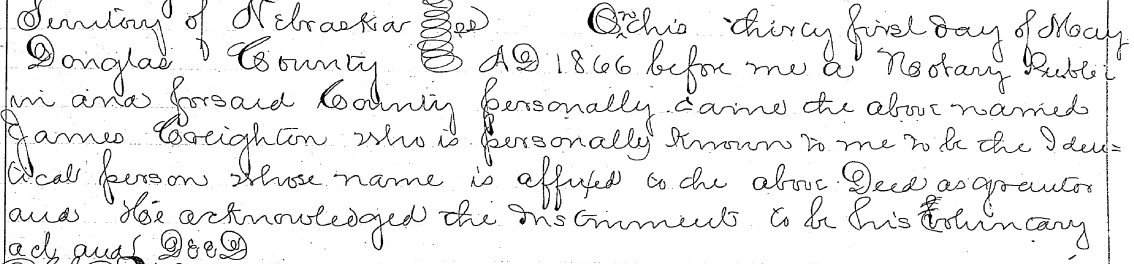 Territory of Nebraska } ss On this thirty first day of May
Douglas County } AD 1866 before me a Notary Public
in and forsaid County personally came the above named
James Creighton who is personally known to me to be the Iden=
tical person whose name is affixed to the above Deed as grantor
and He acknowledged the Instrument to be his voluntary
act and Deed